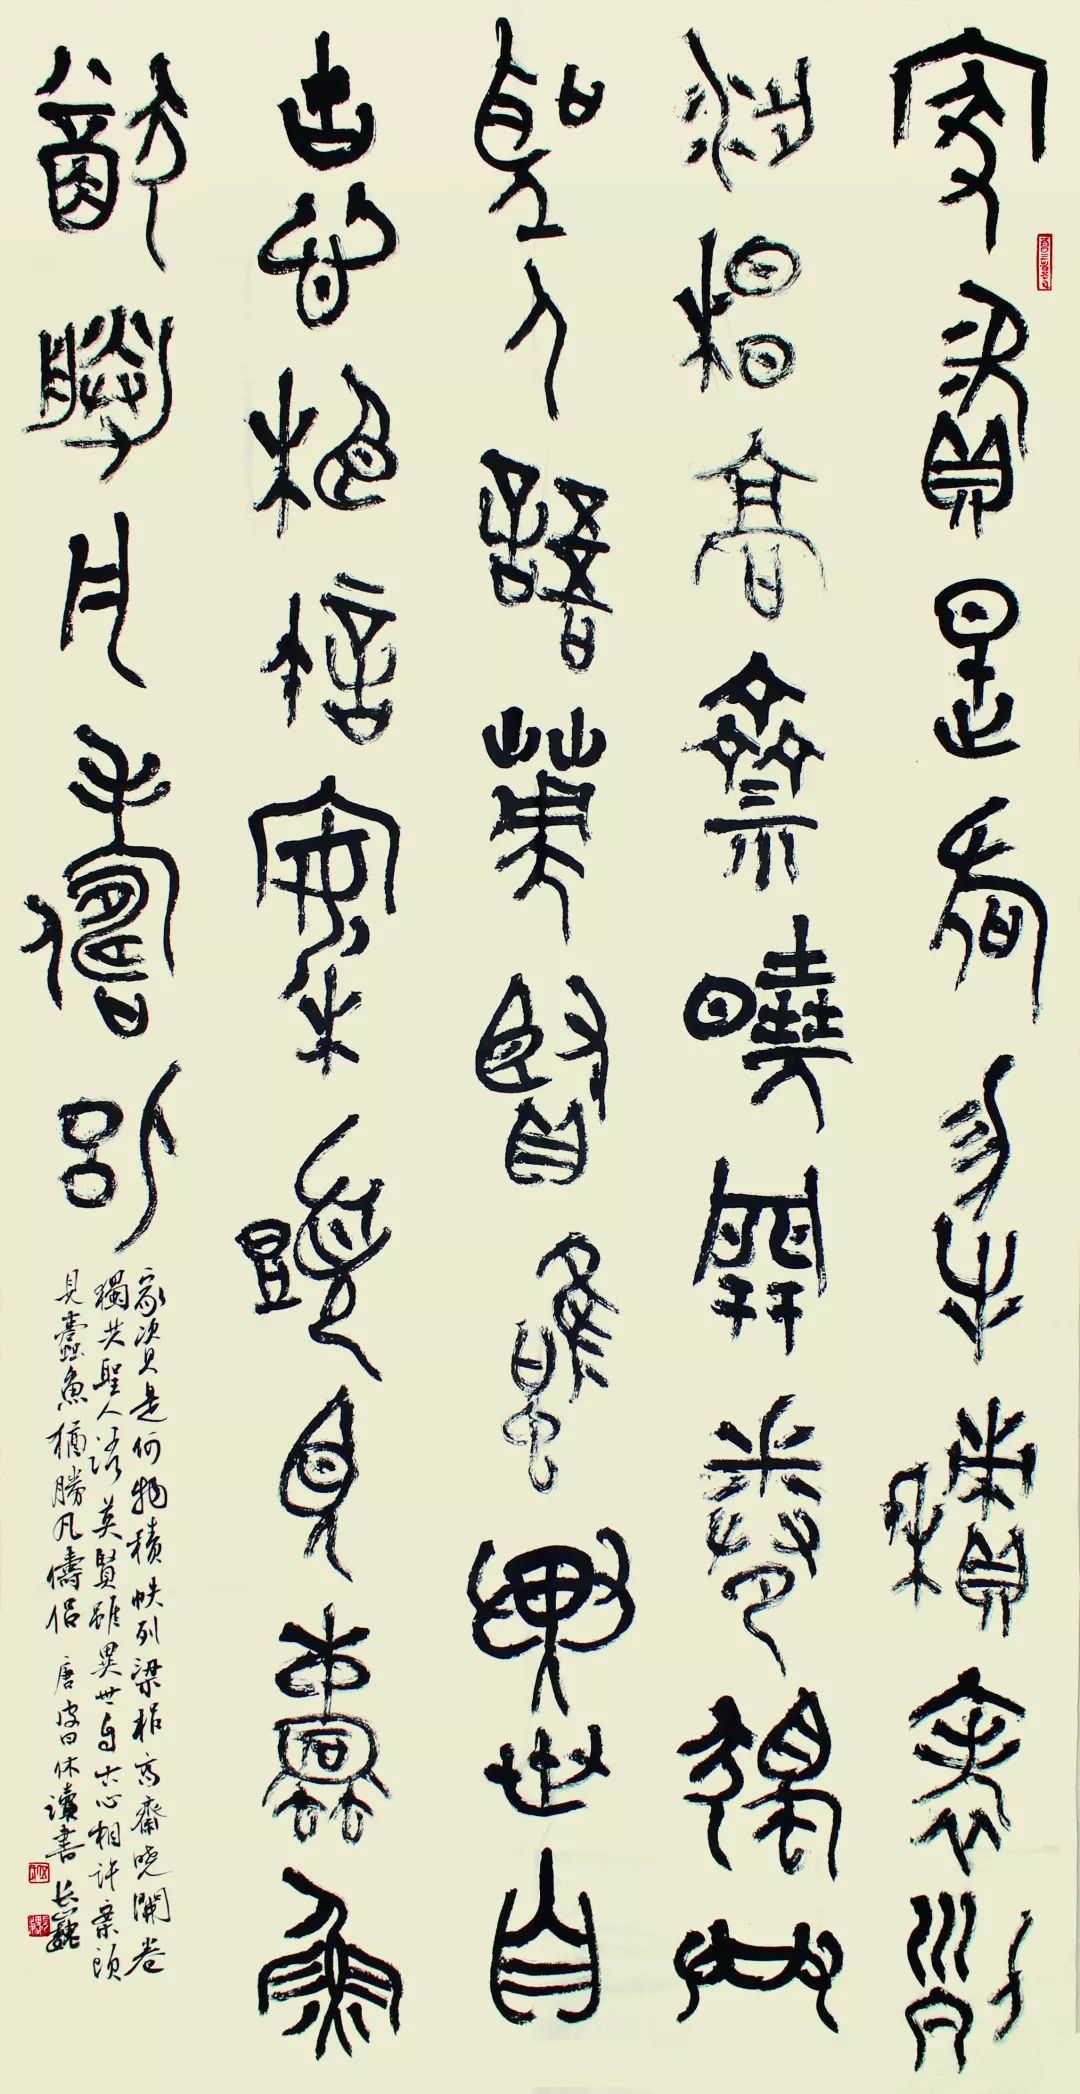 家資是何物積帙列
梁梠高齋曉開卷獨共
聖人語英賢雖異世自
古心相許案頭見蠹魚
猶勝凡儔侶
家資是何物積帙列梁梠高齋曉開卷
獨共聖人語英賢雖異世自古心相許案頭
見蠹魚猶勝凡儔侶 唐皮日休讀書